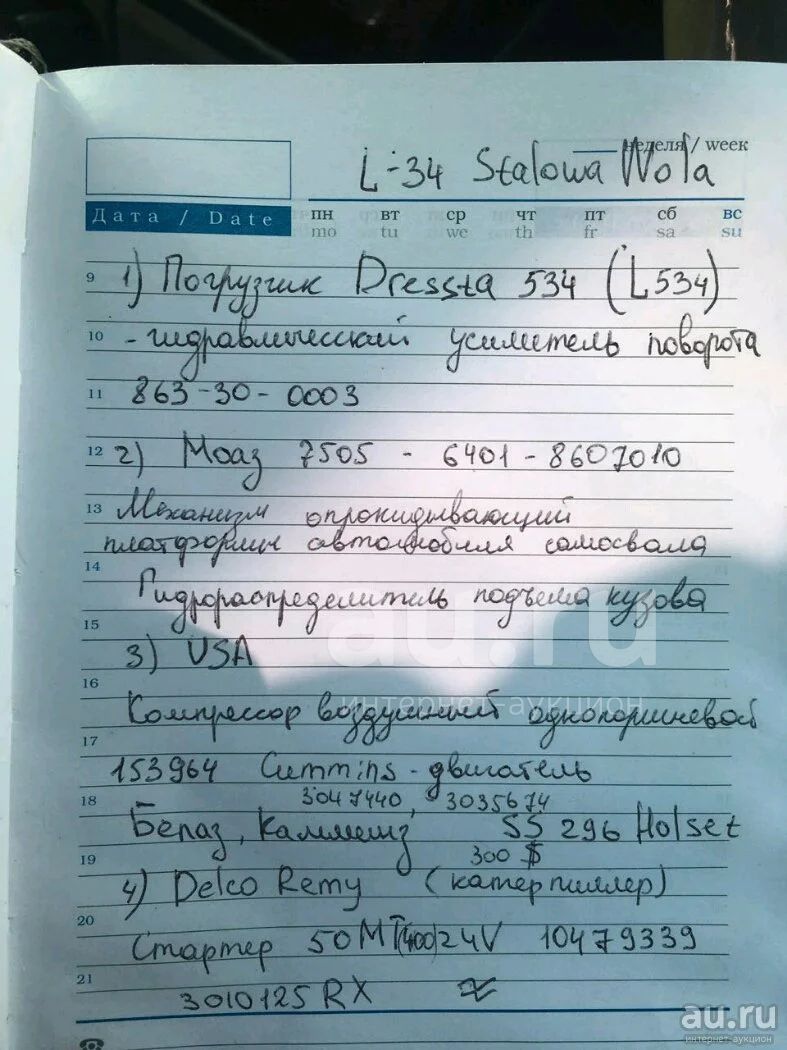 неделя / week
L-34 Stalowa Wola
Дата / Date пн вт ср чт пт сб вс
mo tu we th fr sa su
9 1) Погрузчик Dressta 534 (L534)
10 - гидравлический усилитель поворота
11 863-30-0003
12 2) Моаз 7505 - 6401-8607010
13 Механизм опрокидывающий
платформы автомобиля самосвала
14
Гидрораспределитель подъема кузова
15
3) USA
au.ru
16
интернет-аукцион
Компрессор воздушный однопоршневой
17
153964 Cummins-двигатель
18 3047440, 3035674
Белаз, Камменз SS 296 Holset
19 300 $
4) Delco Remy (катерпиллер)
20
Стартер 50MT(400)24V 10479339
21
3010125RX
au.ru
интернет-аукцион